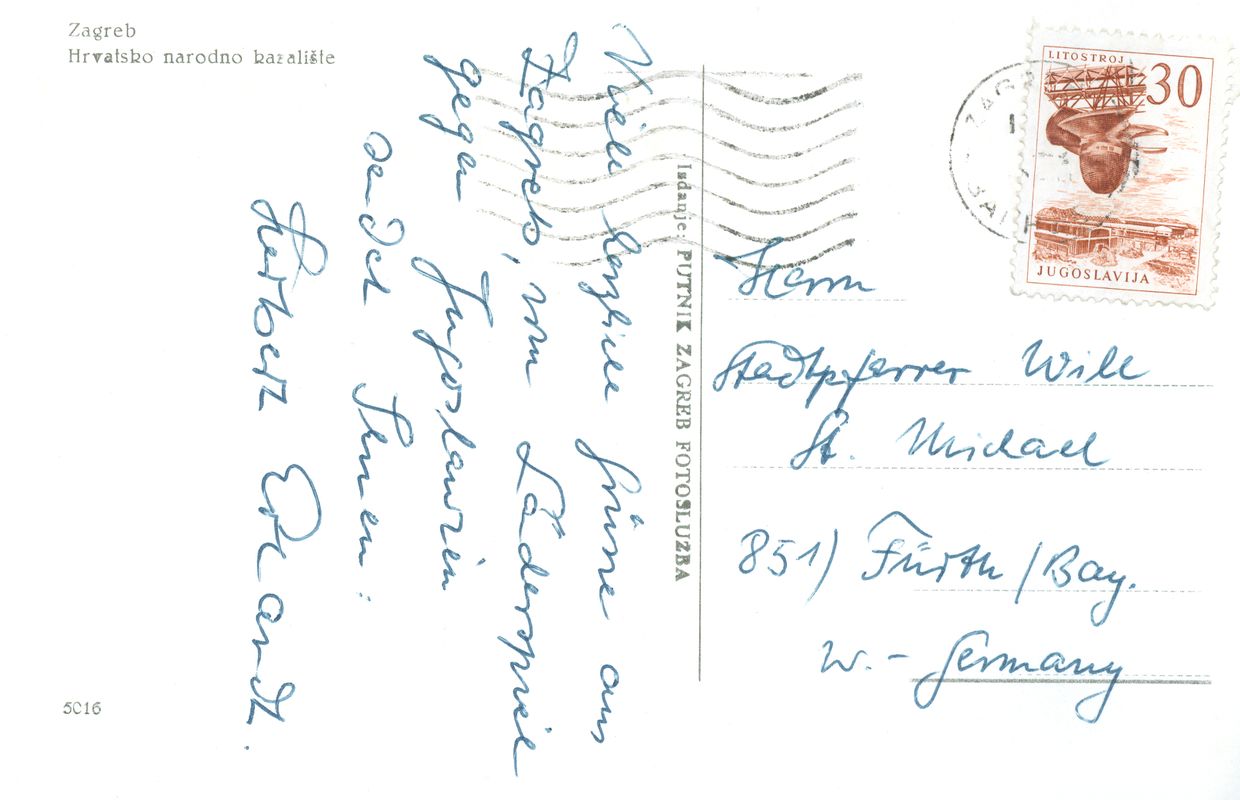 Zagreb
Hrvatsko narodno kazalište
Viele herzliche Grüsse aus
Zagreb, vom Länderspiel
gegen Jugoslawien
sendet Ihnen:
Herbert Erhardt.
Izdanje: PUTNIK ZAGREB FOTOSLUŽBA
LITOSTROJ
30
JUGOSLAVIJA
ZAGREB
Herrn
Stadtpfarrer Will
St. Michael
851) Fürth / Bay.
W.- Germany
5016